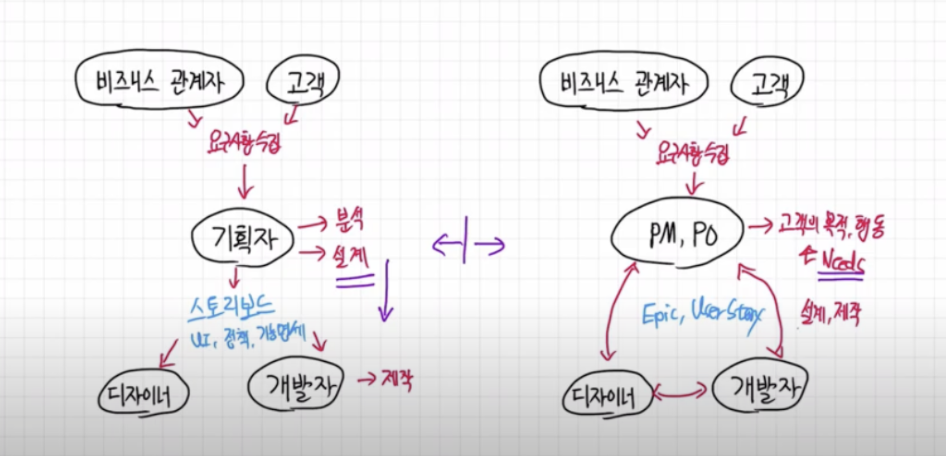 비즈니스 관계자
고객
요구사항수집
기획자
분석
설계
스토리보드
UI, 정책, 기능명세
디자이너
개발자
제작
비즈니스 관계자
고객
요구사항수집
PM, PO
고객의 목적, 행동
Needs
Epic, UserStory
설계, 제작
디자이너
개발자